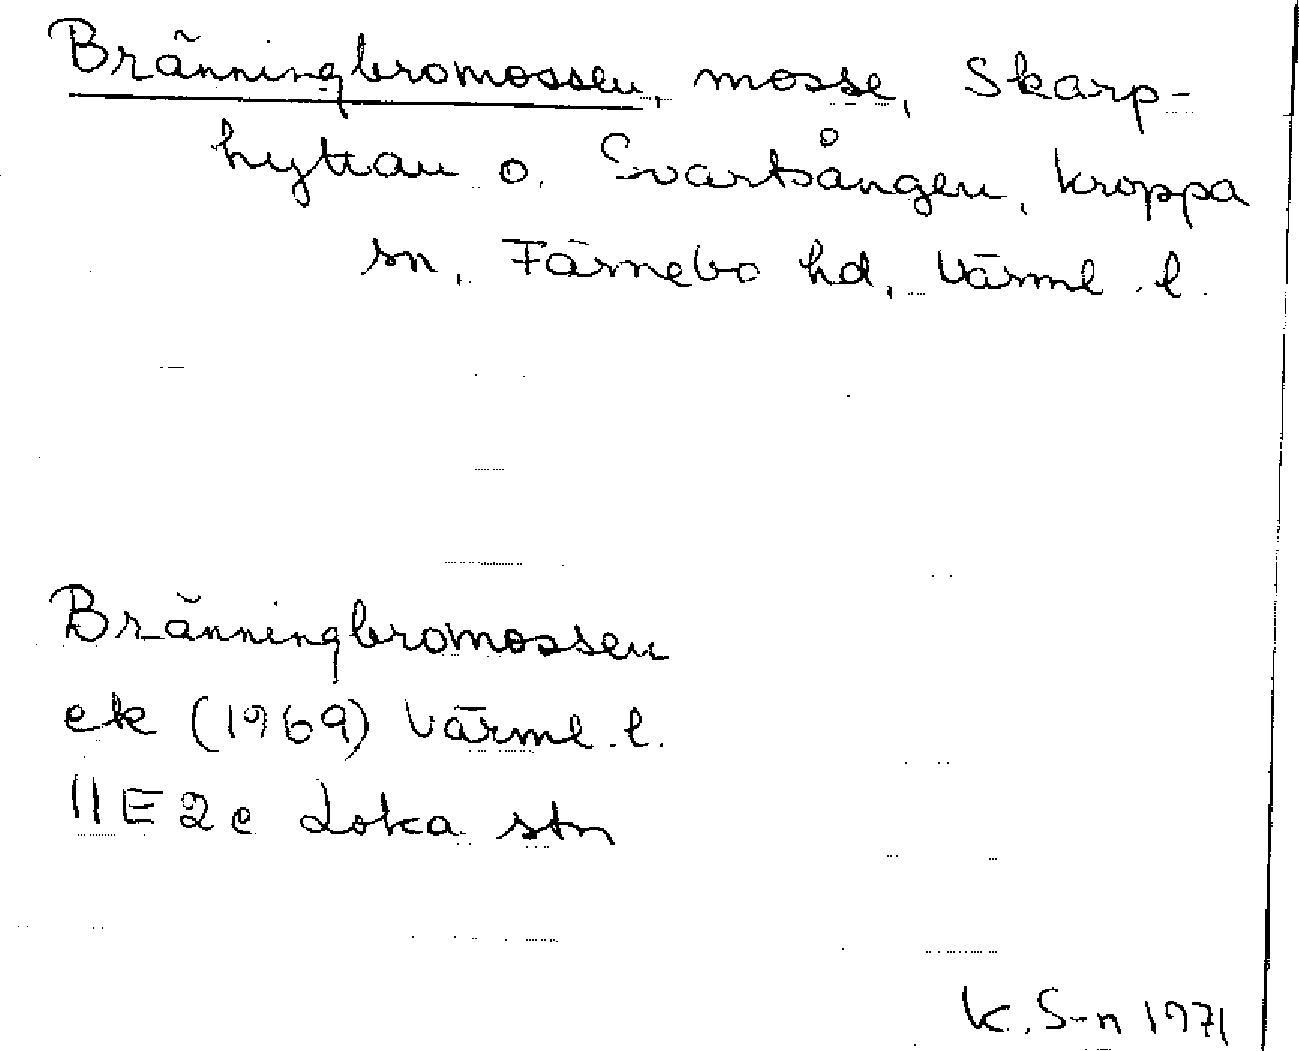 Bränningbromossen, mosse, Skarp-
hyttan o. Svartsången, Kroppa
sn, Färnebo hd, Värml. l.
Bränningbromossen
ek (1969) Värml. l.
11E 2c Loka stn
K. S-n 1971